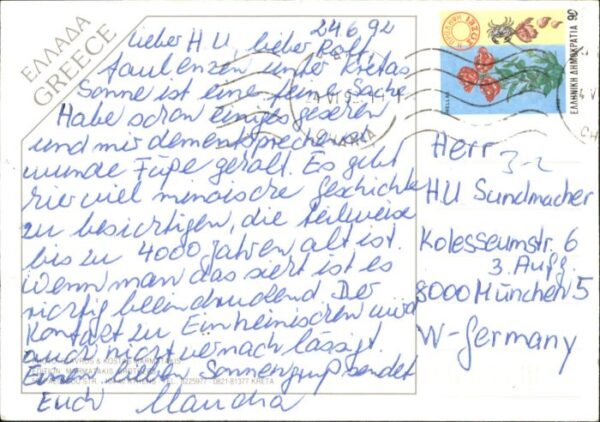 ΕΛΛΑΔΑ
GREECE
24.6.92
Lieber H.U., lieber Ralf,
faulenzen unter Kretas
Sonne ist eine feine Sache
Habe schon einiges gesehen
und mir dementsprechend
wunde Füße geholt. Es gibt
hier viel minoische Geschichte
zu besichtigen, die teilweise
bis zu 4000 Jahren alt ist.
Wenn man das sieht ist es
richtig beeindruckend. Der
Kontakt zu Einheimischen wird
auch nicht vernachlässigt
Einen lieben Sonnengruß sendet
Euch Claudia
ΕΛΛΗΝΙΚΗ ΔΗΜΟΚΡΑΤΙΑ 90
HELLAS
Herr
3-2
H.U Sundmacher
Kolosseumstr. 6
3. Aufg.
8000 München 5
W-Germany